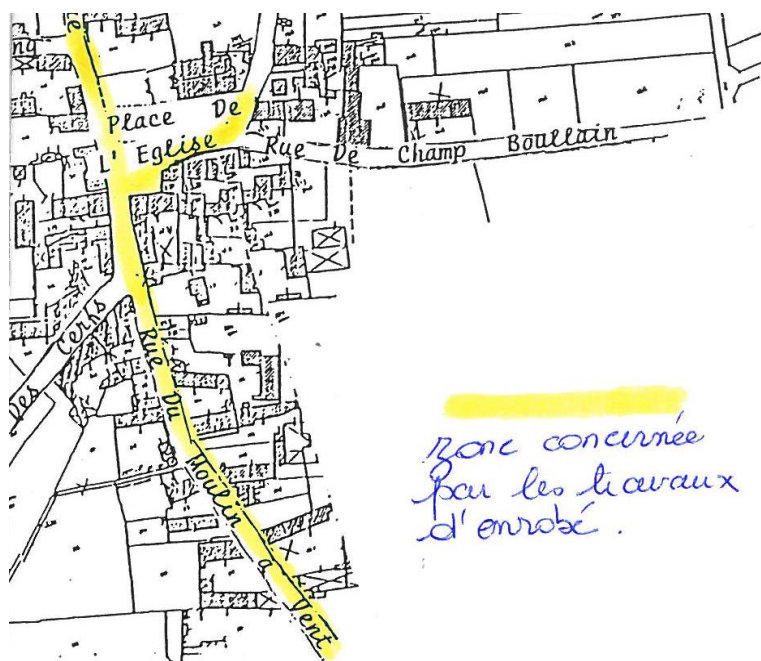 Place De
L' Eglise
Rue De Champ Boullain
Des Cerfs
Rue Du Moulin a Vent
zone concernée
par les travaux
d'enrobé.